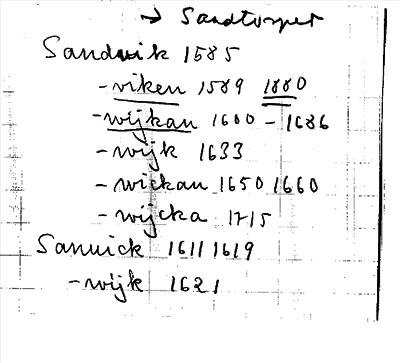 → Sandtorpet
Sandwik 1585
-viken 1589 1880
-wijkan 1600 - 1686
-wijk 1633
-wickan 1650 1660
-wijcka 1715
Sanwick 1611 1619
-wijk 1621